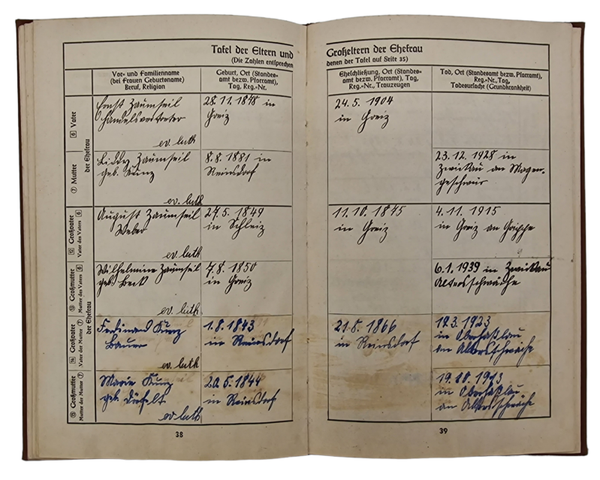 Tafel der Eltern und Großeltern der Ehefrau
(Die Zahlen entsprechen denen der Tafel auf Seite 35)
Vor- und Familienname
(bei Frauen Geburtsname)
Beruf, Religion
Geburt, Ort (Standes-
amt bezw. Pfarramt),
Tag, Reg.-Nr.
Eheschließung, Ort (Standes-
amt bezw. Pfarramt), Tag,
Reg.-Nr., Trauzeugen
Tod, Ort (Standesamt bezw. Pfarramt),
Reg.-Nr., Tag
Todesursache (Grundkrankheit)
der Ehefrau
⑥ Vater
Ernst Zaumseil
Handelsvertreter
ev. luth
28. 11. 1878 in
Greiz
24. 5. 1904
in Greiz
⑦ Mutter
Zaumseil
geb. Kunz
ev. luth
8. 8. 1881 in
Reinsdorf
23. 12. 1928 in
Zwickau an Magen-
geschwür
der Ehefrau
⑫ Großvater
Vater des Vaters ⑥
August Zaumseil
Weber
ev. luth
27. 5. 1849
in Schleiz
11. 10. 1875
in Greiz
4. 11. 1915
in Greiz an Grippe
⑬ Großmutter
Mutter des Vaters ⑥
Wilhelmine Zaumseil
geb.
ev. luth
7. 8. 1850
in Greiz
6. 1. 1939 in Zwickau
Altersschwäche
⑭ Großvater
Vater der Mutter ⑦
Ferdinand Kunz
Bauer
ev. luth
1. 8. 1843
in Reinsdorf
21. 5. 1866
in Reinsdorf
1923
in Oberhaßlau
an Altersschwäche
⑮ Großmutter
Mutter der Mutter ⑦
Marie Kunz
geb.
ev. luth
20. 5. 1844
in Reinsdorf
in Oberhaßlau
an Altersschwäche
38
39